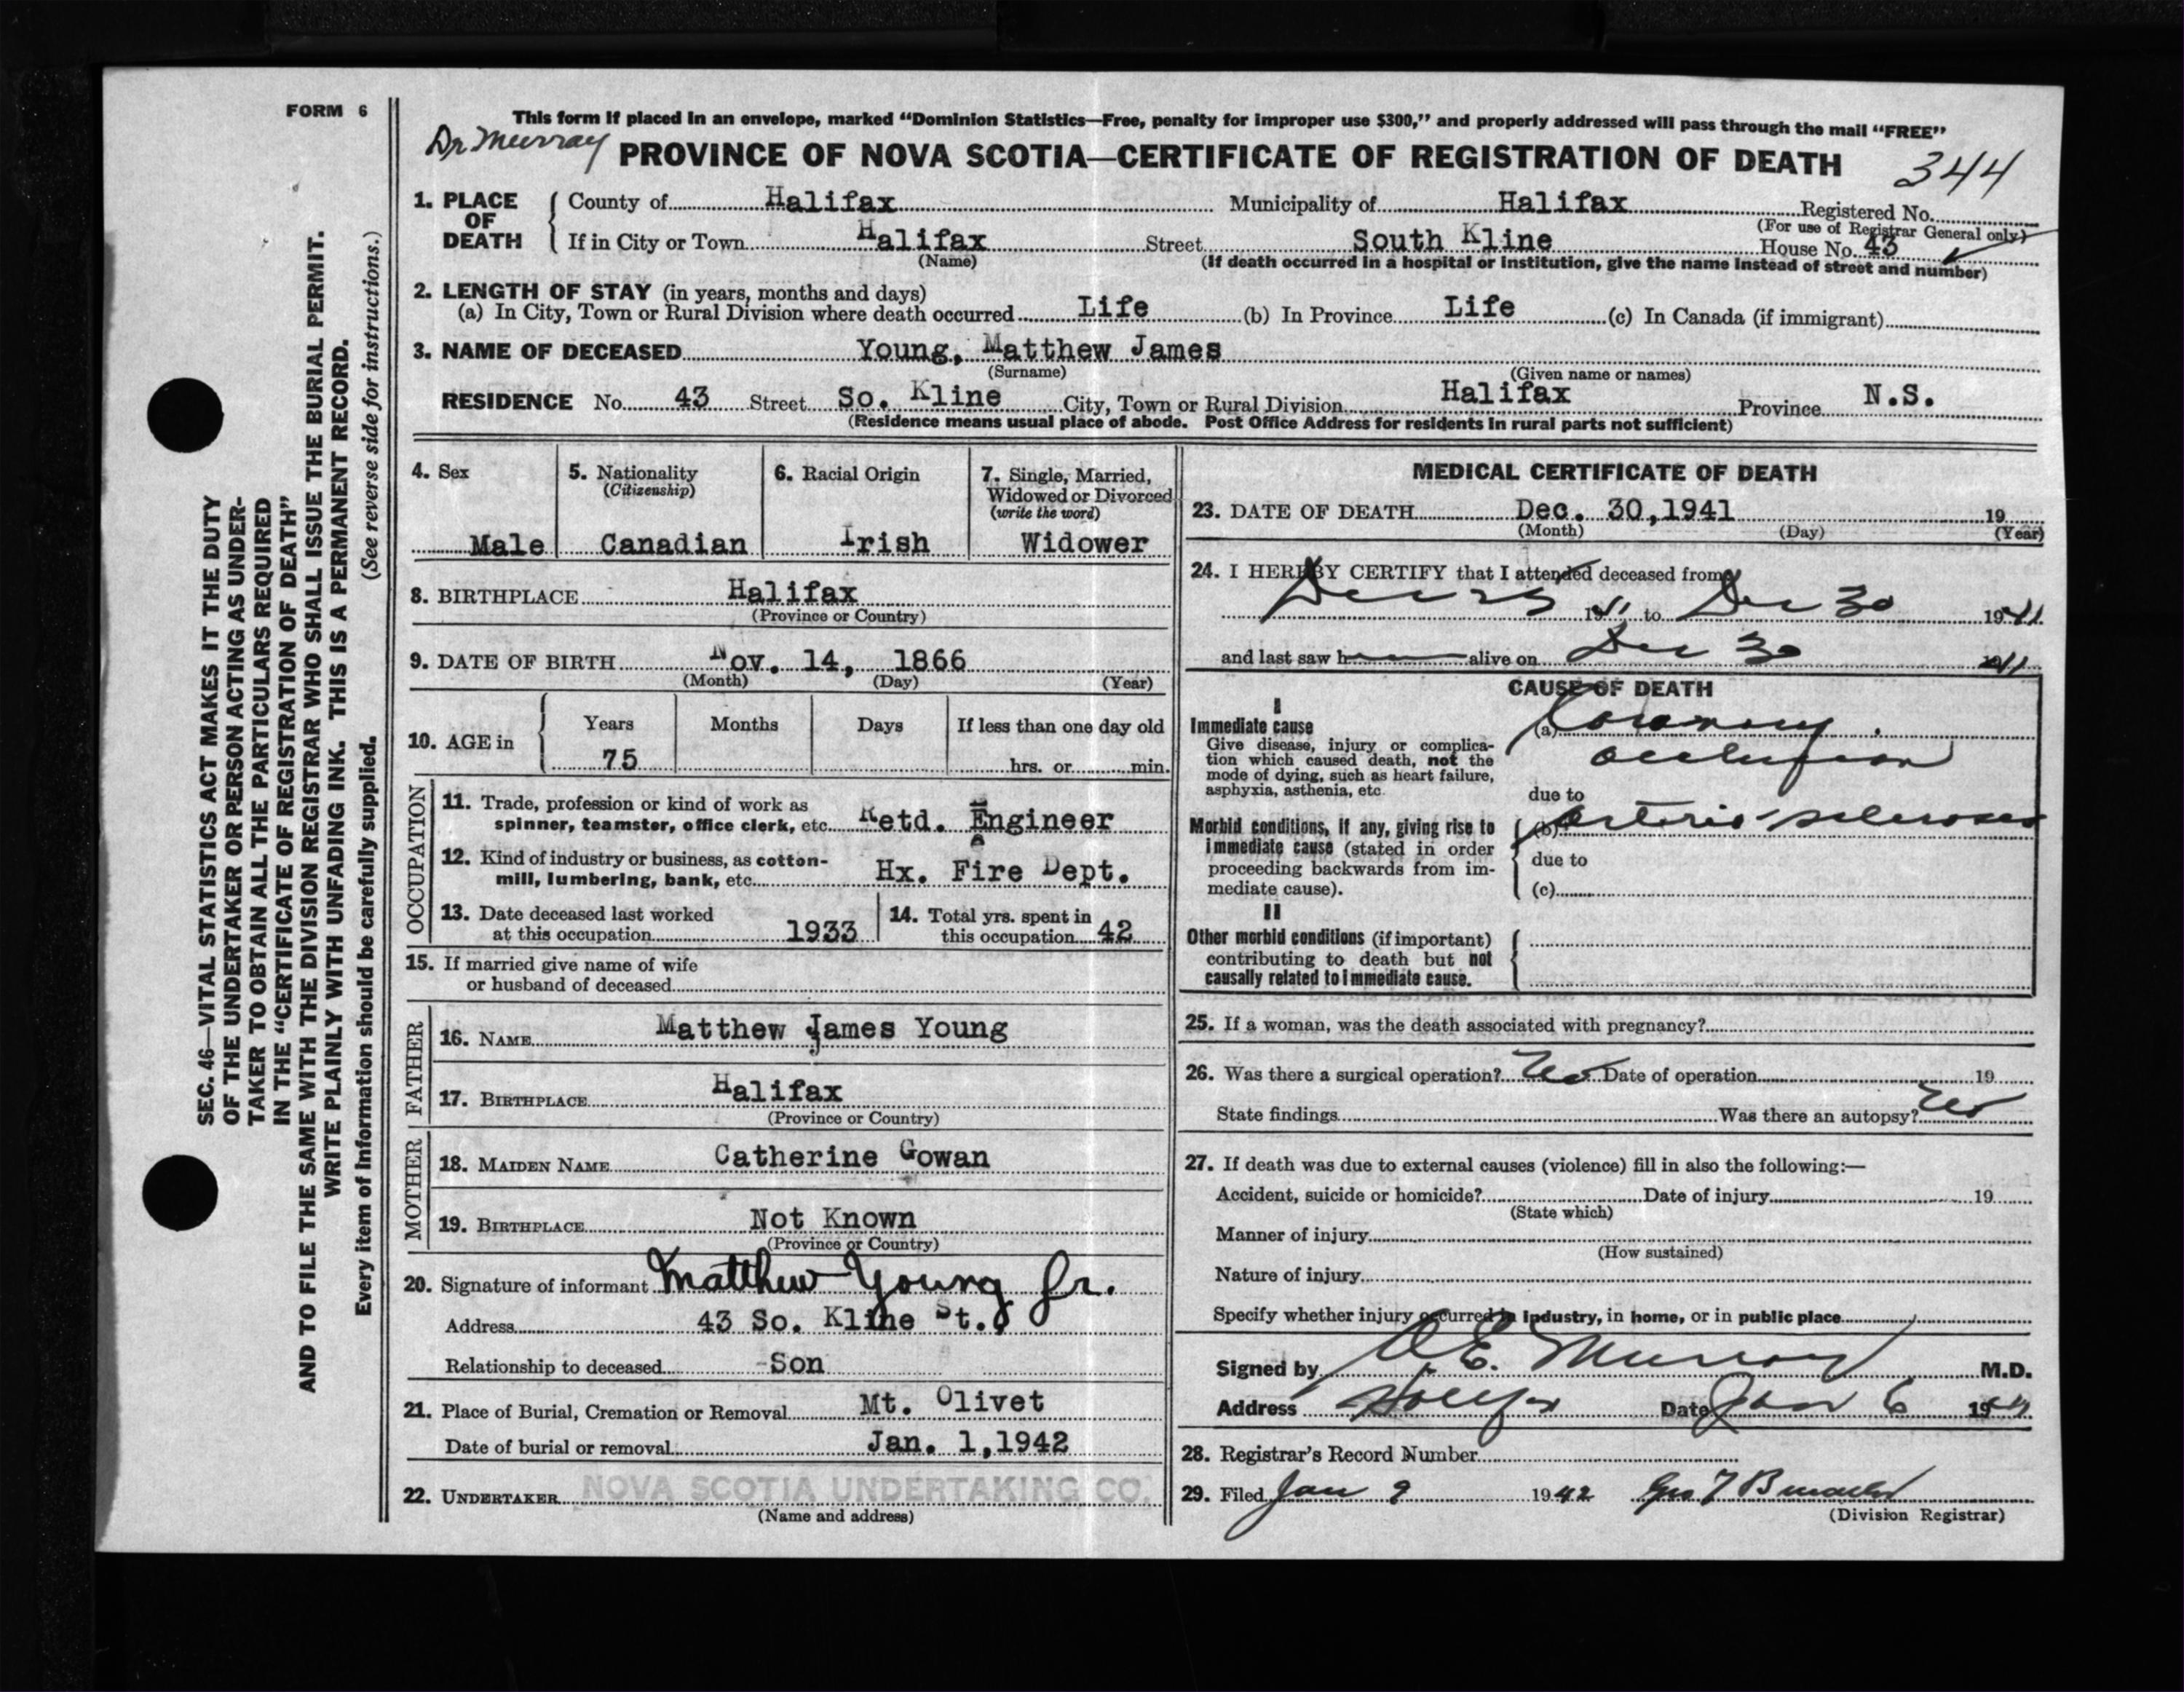 FORM 6
This form if placed in an envelope, marked “Dominion Statistics—Free, penalty for improper use $300,” and properly addressed will pass through the mail “FREE”
Dr Murray PROVINCE OF NOVA SCOTIA—CERTIFICATE OF REGISTRATION OF DEATH 344
1. PLACE OF DEATH
County of Halifax Municipality of Halifax Registered No.
(For use of Registrar General only)
If in City or Town Halifax Street South Kline House No. 43
(Name) (If death occurred in a hospital or institution, give the name instead of street and number)
2. LENGTH OF STAY (in years, months and days)
(a) In City, Town or Rural Division where death occurred Life (b) In Province Life (c) In Canada (if immigrant)
3. NAME OF DECEASED Young, Matthew James
(Surname) (Given name or names)
RESIDENCE No. 43 Street So. Kline City, Town or Rural Division Halifax Province N.S.
(Residence means usual place of abode. Post Office Address for residents in rural parts not sufficient)
4. Sex
Male
5. Nationality
(Citizenship)
Canadian
6. Racial Origin
Irish
7. Single, Married,
Widowed or Divorced
(write the word)
Widower
8. BIRTHPLACE Halifax
(Province or Country)
9. DATE OF BIRTH Nov. 14, 1866
(Month) (Day) (Year)
10. AGE in
Years Months Days If less than one day old
75 hrs. or min.
OCCUPATION
11. Trade, profession or kind of work as
spinner, teamster, office clerk, etc. Retd. Engineer
12. Kind of industry or business, as cotton-
mill, lumbering, bank, etc. Hx. Fire Dept.
13. Date deceased last worked
at this occupation 1933
14. Total yrs. spent in
this occupation 42
15. If married give name of wife
or husband of deceased
FATHER
16. NAME Matthew James Young
17. BIRTHPLACE Halifax
(Province or Country)
MOTHER
18. MAIDEN NAME Catherine Gowan
19. BIRTHPLACE Not Known
(Province or Country)
20. Signature of informant Matthew Young Jr.
Address 43 So. Kline St.
Relationship to deceased Son
21. Place of Burial, Cremation or Removal Mt. Olivet
Date of burial or removal Jan. 1, 1942
22. UNDERTAKER NOVA SCOTIA UNDERTAKING CO.
(Name and address)
MEDICAL CERTIFICATE OF DEATH
23. DATE OF DEATH Dec. 30, 1941 19
(Month) (Day) (Year)
24. I HEREBY CERTIFY that I attended deceased from
Dec 25 1941 to Dec 30 1941
and last saw h alive on Dec 30 1941
CAUSE OF DEATH
I
Immediate cause
Give disease, injury or complica-
tion which caused death, not the
mode of dying, such as heart failure,
asphyxia, asthenia, etc.
(a) Coronary
occlusion
due to
Morbid conditions, if any, giving rise to
immediate cause (stated in order
proceeding backwards from im-
mediate cause).
(b) Arterio-sclerosis
due to
(c)
II
Other morbid conditions (if important)
contributing to death but not
causally related to immediate cause.
25. If a woman, was the death associated with pregnancy?
26. Was there a surgical operation? No Date of operation 19
State findings Was there an autopsy? No
27. If death was due to external causes (violence) fill in also the following:—
Accident, suicide or homicide? Date of injury 19
(State which)
Manner of injury
(How sustained)
Nature of injury
Specify whether injury occurred in industry, in home, or in public place
Signed by E. Murray M.D.
Address Halifax Date Jan 6 1942
28. Registrar's Record Number
29. Filed Jan 9 1942 Geo
(Division Registrar)
SEC. 46—VITAL STATISTICS ACT MAKES IT THE DUTY
OF THE UNDERTAKER OR PERSON ACTING AS UNDER-
TAKER TO OBTAIN ALL THE PARTICULARS REQUIRED
IN THE “CERTIFICATE OF REGISTRATION OF DEATH”
AND TO FILE THE SAME WITH THE DIVISION REGISTRAR WHO SHALL ISSUE THE BURIAL PERMIT.
WRITE PLAINLY WITH UNFADING INK. THIS IS A PERMANENT RECORD.
Every item of information should be carefully supplied. (See reverse side for instructions.)